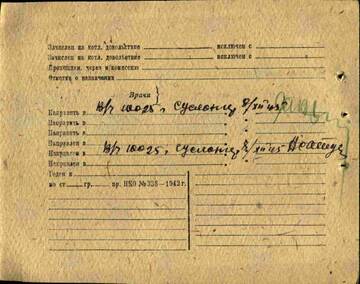 Зачислен на котл. довольствие исключен с
Зачислен на котл. довольствие исключен с
Проведен. через комиссию
Отметка о назначении
Врачи
Направить в В/ч 10025 г. Суслонгер 8/XII 45
Направить в
Направить в
Направлен в
Направлен в В/ч 10025, Суслонгер 8/XII 45
Направлен в
Годен к
по ст. гр. пр. НКО № 336—1942 г.